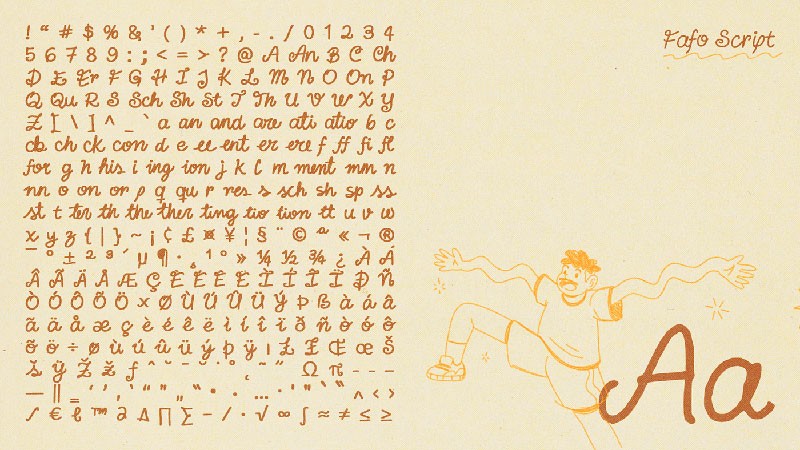 ! “ # $ % & ' ( ) * + , - . / 0 1 2 3 4
5 6 7 8 9 : ; < = > ? @ A An B C Ch
D E Er F G H I J K L M N O On P
Q Qu R S Sch Sh St T Th U V W X Y
Z [ \ ] ^ _ ` a an and are ati atio b c
cb ch ck con d e ee ent er ere f ff fi fl
for g h his i ing ion j k l m ment mm n
nn o on or p q qu r res s sch sh sp ss
st t ter th the ther ting tio tion tt u v w
x y z { | } ~ ¡ ¢ £ ¤ ¥ ¦ § ¨ © ª « ¬ ®
¯ ° ± ² ³ ´ µ ¶ · ¸ ¹ º » ¼ ½ ¾ ¿ À Á
Â Ã Ä Å Æ Ç È É Ê Ë Ì Í Î Ï Ð Ñ
Ò Ó Ô Õ Ö × Ø Ù Ú Û Ü Ý Þ ß à á â
ã ä å æ ç è é ê ë ì í î ï ð ñ ò ó ô
õ ö ÷ ø ù ú û ü ý þ ÿ ı Ł Œ œ Š
š Ÿ Ž ž ƒ ˆ ˇ ˘ ˙ ˚ ˛ ˜ ˝ Ω π - - -
— ‖ ‗ ‘ ’ ‚ “ ” „ • … ‹ ›
⁄ € ℓ ™ ∂ ∆ ∏ ∑ − ∕ ∙ √ ∞ ∫ ≈ ≠ ≤ ≥
Fafo Script
Aa